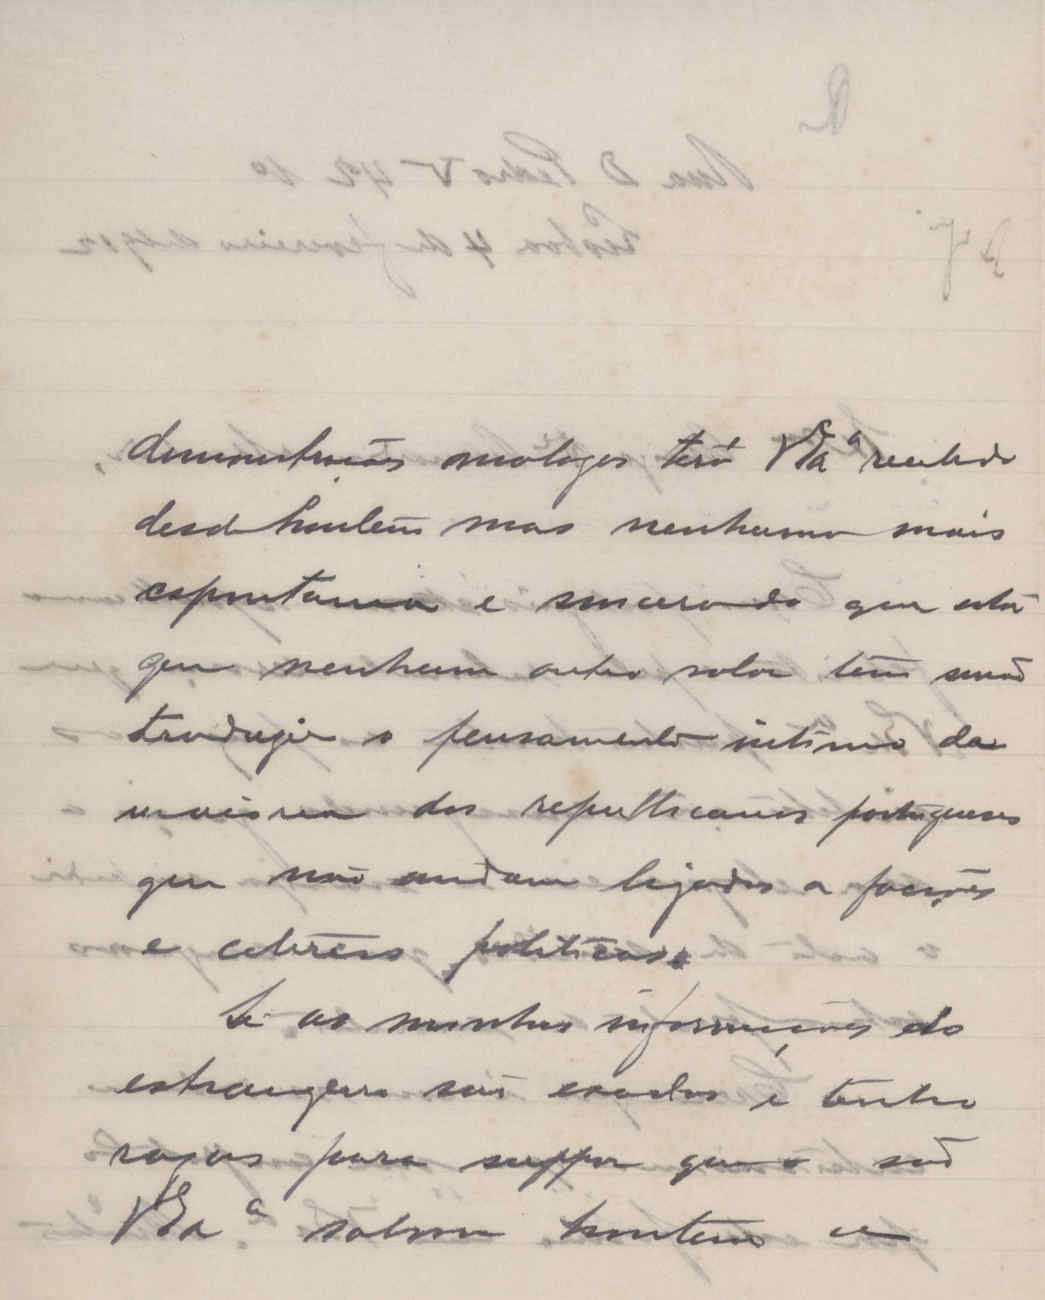 demonstracões analogas terá V. Exª recebido
desde hontem mas nenhuma mais
espontanea e sincera do que esta
que nenhum outro valor tem senão
traduzir o pensamento intimo da
maioria dos republicanos portuguezes
que não andam ligados a facções
e coteries politicas.
Se as minhas informações do
estrangeiro são exactas e tenho
razões para suppor que o são
V. Exª salvou hontem a